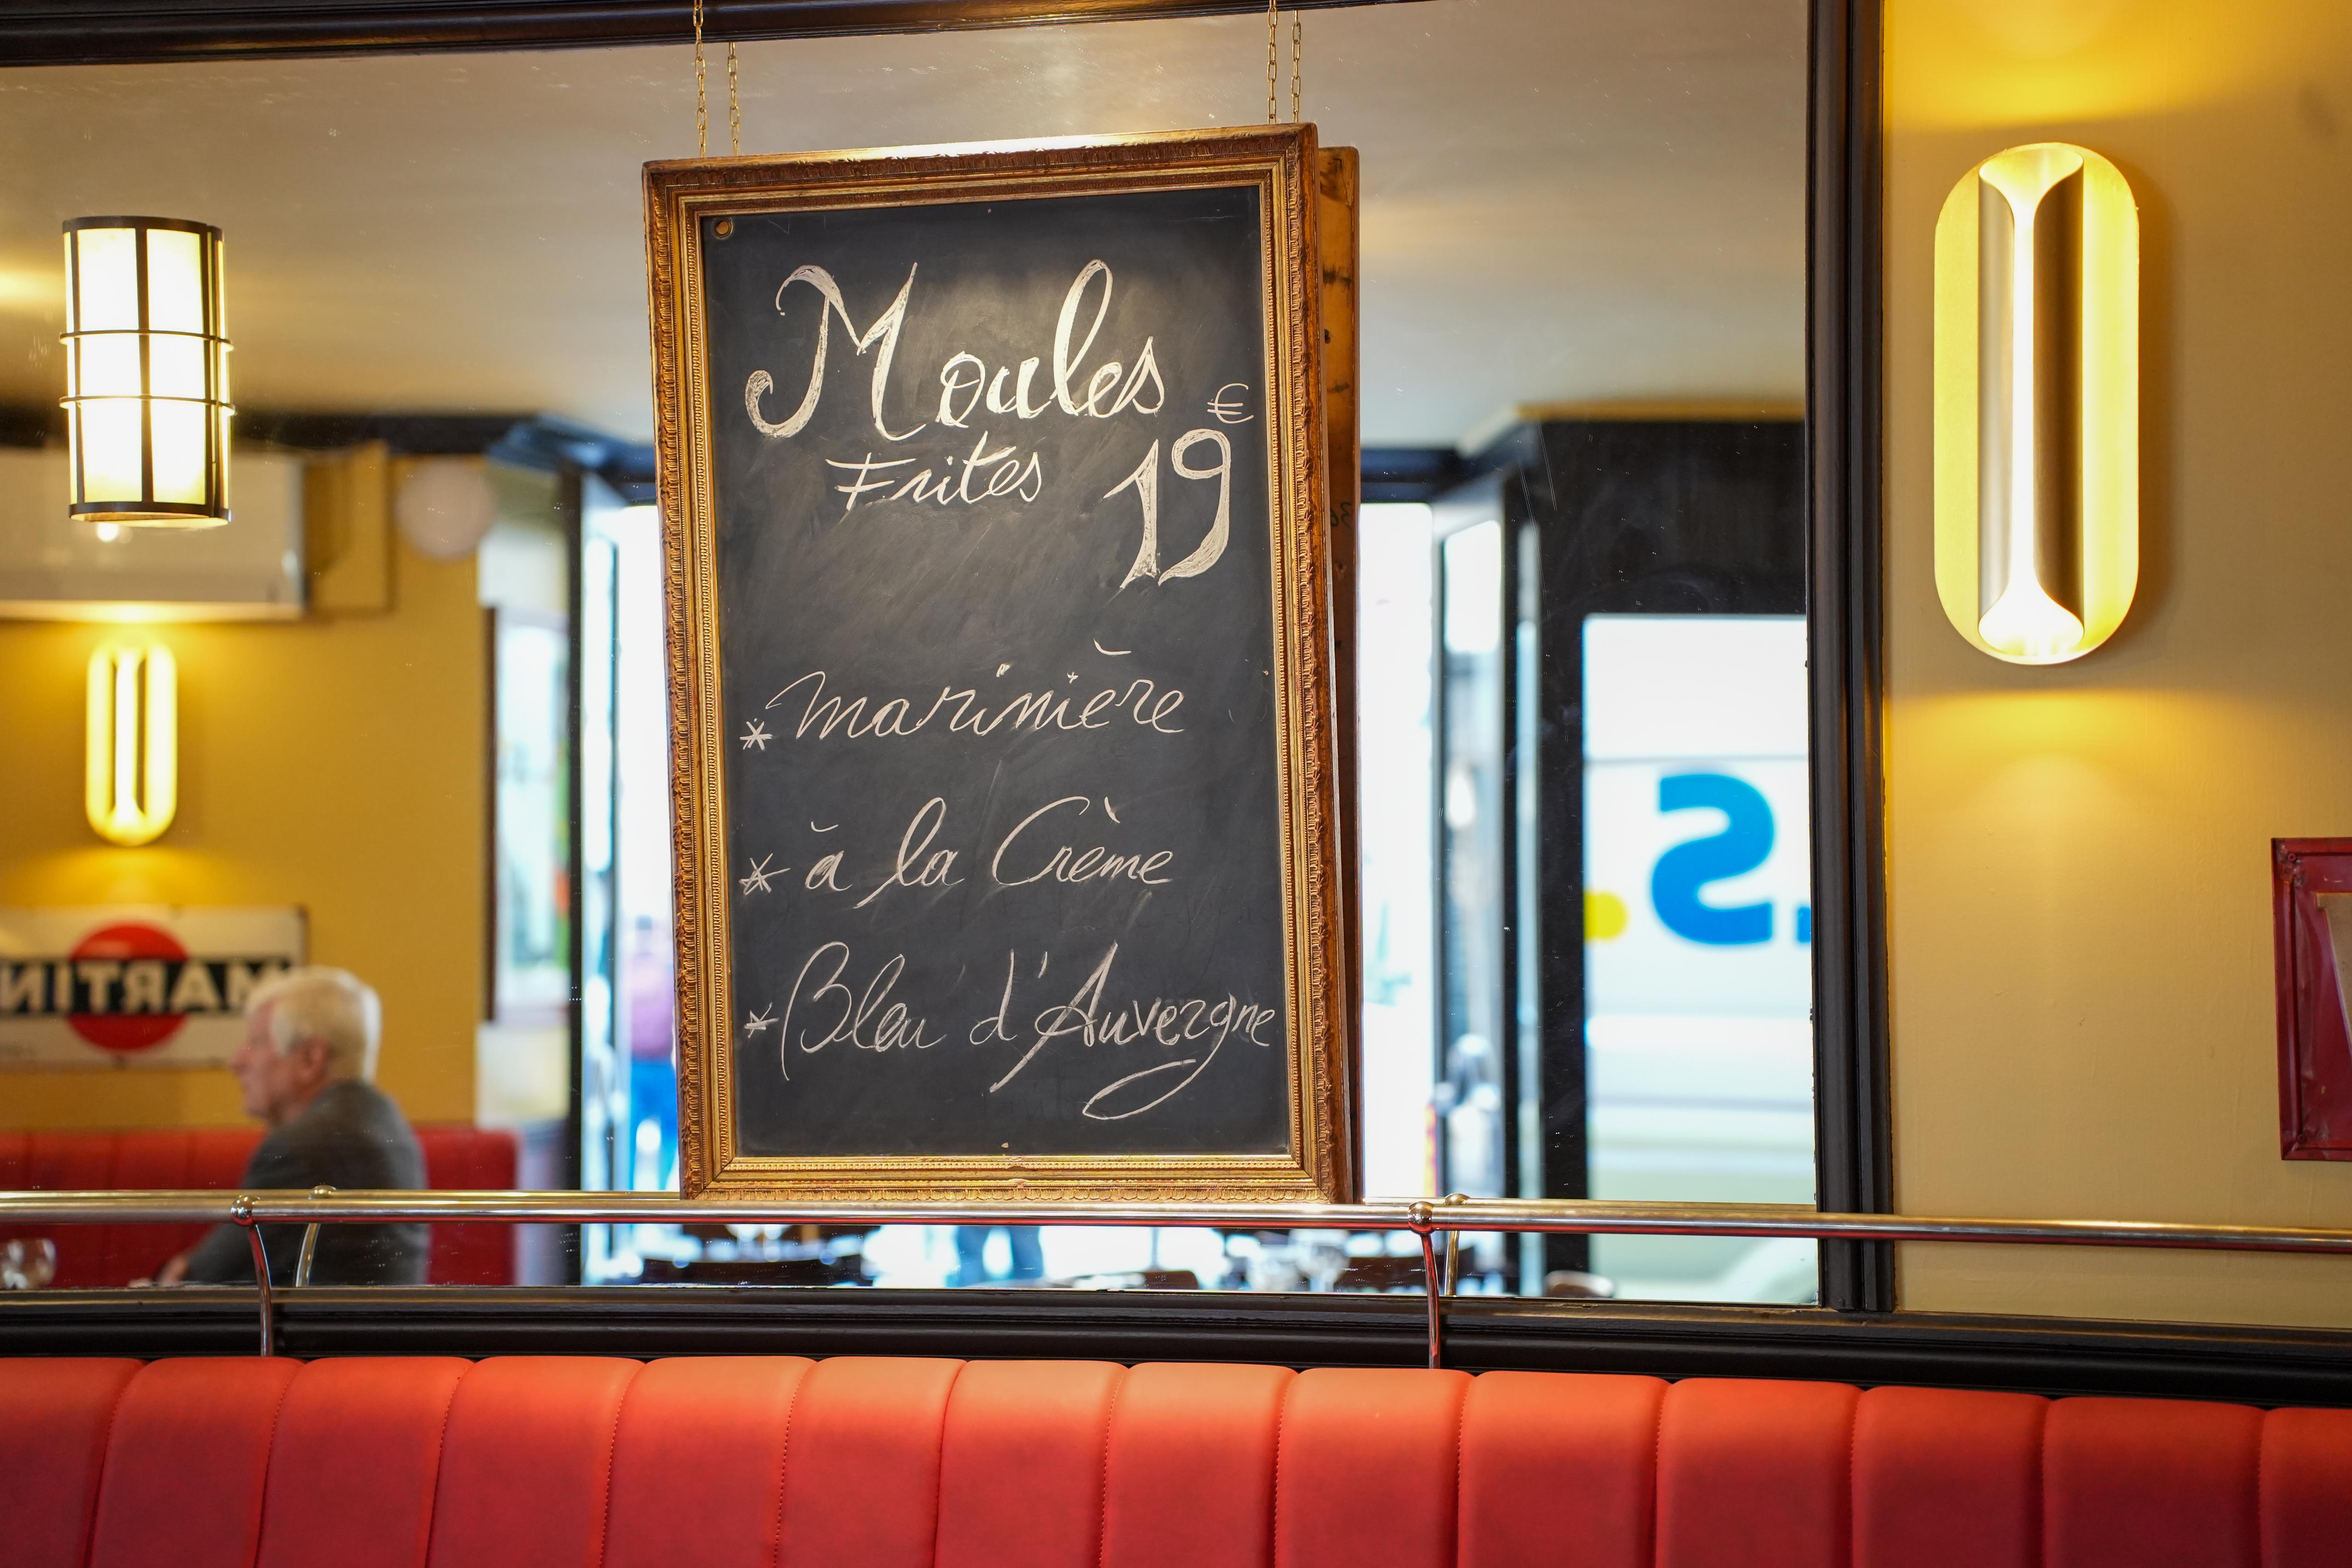 Moules
Frites 19€
* marinière
* à la Crème
* Bleu d'Auvergne
MARTINI
S